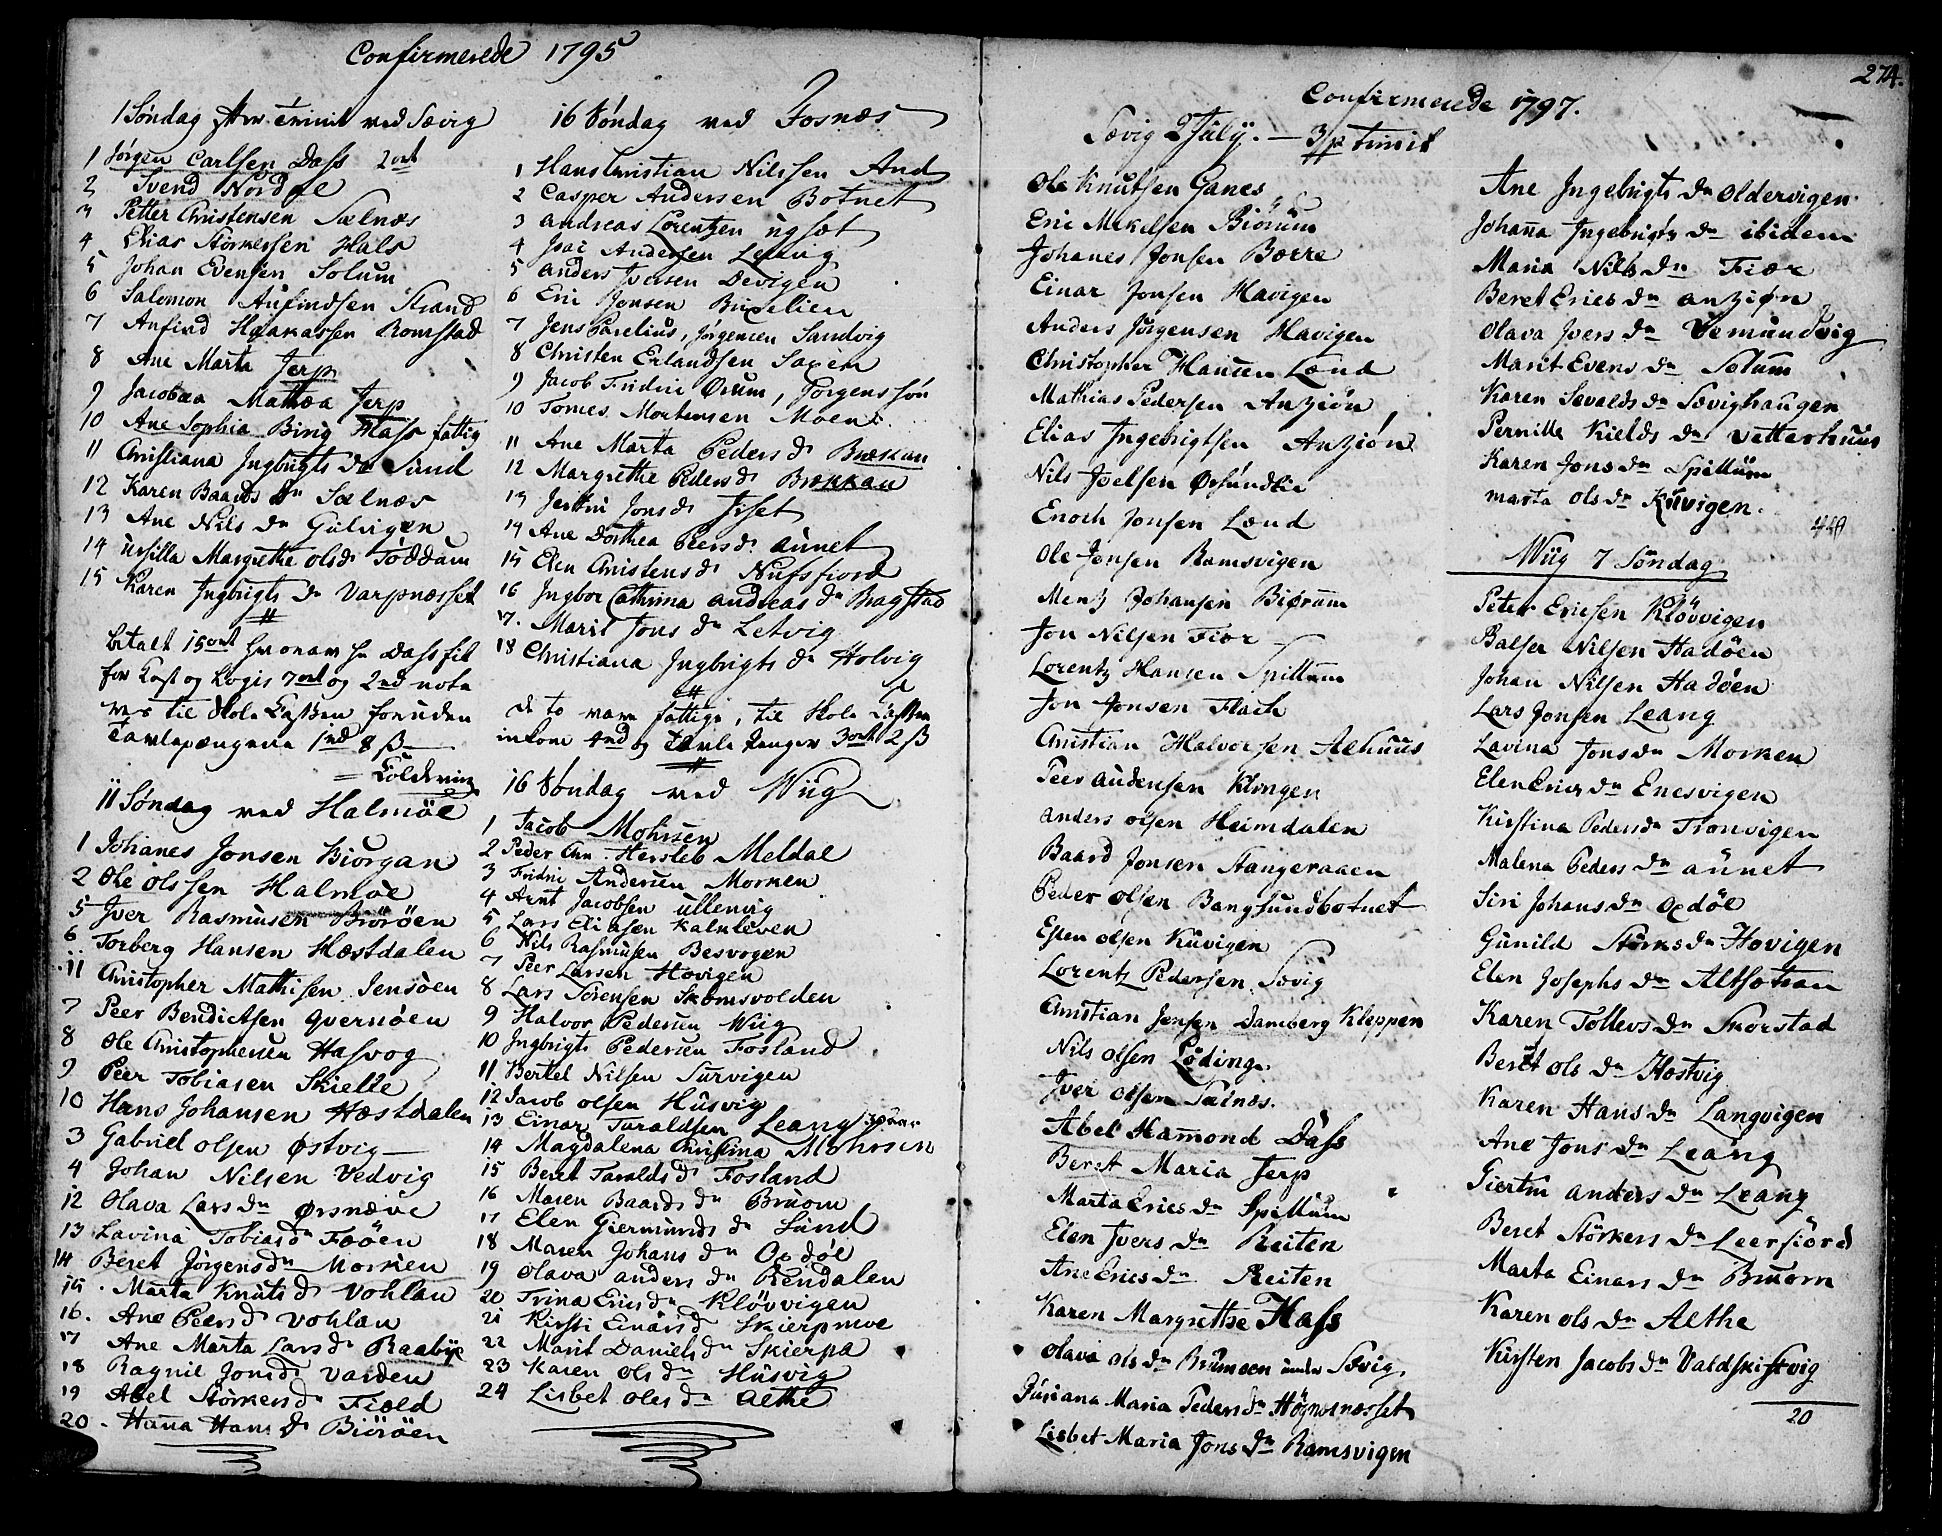 Confirmerede 1795
1 Søndag ved Sævig
1 Jørgen Carlsen Dass 2 ort
2 Svend Nordøe
3 Petter Christensen Sælnæs
4 Elias Størkersen Hals
5 Johan Evensen Solum
6 Salomon Anfindsen Strand
7 Anfind Haakassen Romstad
8 Ane Marta Jerp
9 Jacobæa Mathea Jerp
10 Ane Sophia Birig Hass fattig
11 Christiana Ingbrigts dr Sund
12 Karen Baards dr Sælnæs
13 Ane Nils dr Gulvigen
14 Ursilla Margrethe ols dr Toddum
15 Karen Ingbrigts dr Varpnæsset
betalt 15 ort hvoraf hr Dass fik
for Kost og Logis 7 ort og 2 rd
til Skole Cassen foruden
Tavlepængene 1 rd 8 ß
11 Søndag ved Halmøe
1 Johanes Jonsen Biørgan
2 Ole Olssen Halmøe
5 Iver Rasmusen Brørøen
6 Torberg Hansen Hæstdalen
11 Christopher Mathisen Jensøen
7 Peer Bendictsen Qvernøen
8 Ole Christophersen Hasvog
9 Peer Tobiasen Skielle
10 Hans Johansen Hæstdalen
3 Gabriel Olsen Østvig
4 Johan Nilsen Vedvig
12 Olava Lars dr Ørsnæve
13 Lavina Tobias dr Foøen
14 Beret Jørgens dr Morken
15 Marta Knuts dr Vohlan
16. Ane Peers dr Vohlan
17 Ane Marta Lars dr Raabye
18 Ragnil Jons dr Varden
19 Abel Størkers dr Fiold
20 Hanna Hans dr Biørøen
16 Søndag ved Fosnæs
1 Hans Christian Nilssen And
2 Casper Andersen Botnet
3 Andreas Lorentzen Ugset
4 Isac Andersen Letvig
5 Anders Iversen Devigen
6 Eric Jonsen Bruslien
7 Jens Parelius, Jørgensen Sandvig
8 Christen Erlandsen Saxen
9 Jacob Fridric Ørum, Jørgenssøn
10 Tomes Mortensen Moen
11 Ane Marta Peders dr Bræckan
12 Margrethe Peders dr Brækkan
13 Jons dr Fiset
14 Ane Dorthea Peers dr Aunet
15 Elen Christens dr Nufsfiord
16 Ingbor Cathrina Andreas dr Bragstad
17. Marit Jons dr Letvig
18 Christiana Ingbrigts dr Holvig
de to vare fattige, til Skole Cassen
inkom 4 rd og Tavle penger 3 ort 2 ß
16 Søndag ved Wiig
1 Jacob Mohrsen
2 Peder Chr. Hersleb Meldal
3 Fridric Andersen Morken
4 Arnt Jacobsen Ullenvig
5 Lars Eliasen Kalnleven
6 Nils Rasmusen Besvogen
7 Peer Larsen Hovigen
8 Lars Sørensen Skomsvolden
9 Halvor Pedersen Wiig
10 Ingbrigts Pedersen Fosland
11 Bertel Nilsen Survigen
12 Jacob Olsen Husvig
13 Einar Turaldsen Leang
14 Magdalena Christina Mohrsen
15 Beret Taralds dr Fosland
16 Maren Baards dr Bruom
17 Elen Giermunds dr Sund
18 Maren Johans dr Opdøl
19 Olava Anders dr Rendalen
20 Trina Erics dr Kløvvigen
21 Kirsti Einars dr Skierpnive
22 Marit Daniels dr Skierpa
23 Karen Ols dr Husvig
24 Lisbet Oles dr Aethe
274.
Confirmerede 1797.
Sævig 2 July. — 3 p trinit
Ole Knutsen Ganes
Eric Mekelsen Biørum
Johanes Jonsen Borre
Einar Jonsen Havigen
Anders Jørgensen Havigen
Christopher Hansen Lænd
Mathias Pedersen Anziøn
Elias Ingebrigtsen Anziøn
Nils Joelsen Ørsundlie
Enoch Jonsen Lænd
Ole Jensen Ramsvigen
Mentz Johansen Biørum
Jon Nilsen Fiær
Lorentz Hansen Spillum
Jon Jonsen Flack
Christian Halvorsen Aelhuus
Peer Audensen Klingen
Anders Olsen Heimdalen
Baard Jonsen Stangeraaen
Peder Olsen Bangsundbotnet
Espen Olsen Kuvigen
Lorentz Pedersen Sævig
Christian Jensen Damberg Kleppen
Nils Olsen Løding
Iver Olsen Talnæs.
Abel Hammond Dass
Beret Maria Jerp
Marta Erics dr Spillum
Elen Ivers dr Reiten
Ane Erics dr Reiten
Karen Margrethe Hass
Olava Ols dr under Sævig
Maria Peders dr Høgnesnæsset
Lisbet Maria Jons dr Ramsvigen
Ane Ingebrigts dr Oldervigen
Johanna Ingebrigts dr ibidem
Maria Nils dr Fiær
Beret Erics dr Anziøn
Olava Ivers dr Vemundvig
Marit Evens dr Solum
Karen Sevalds dr Sævighaugen
Pernille Kields dr Vetterhuus
Karen Jons dr Spillum
Marta Ols dr Kuvigen.
Wiig 7 Søndag
Peter Ericsen Kløvvigen
Balser Nilsen Hadøen
Johan Nilsen Hadøen
Lars Jonsen Leang
Lavina Jons dr Morken
Elen Erics dr Enesvigen
Kirstina Peders dr Tronvigen
Malena Peders dr Aunet
Siri Johans dr Opdøl
Gunild Størks dr Hovigen
Elen Josephs dr Altsætran
Karen Tollevs dr Skorstad
Beret Ols dr Høstvig
Karen Hans dr Langvigen
Ane Jons dr Leang
Giertru Anders dr Leang
Beret Størkers dr Leersiord
Marta Einars dr Bruom
Karen Ols dr Aelhe
Kirsten Jacobs dr Valdskistvig
20